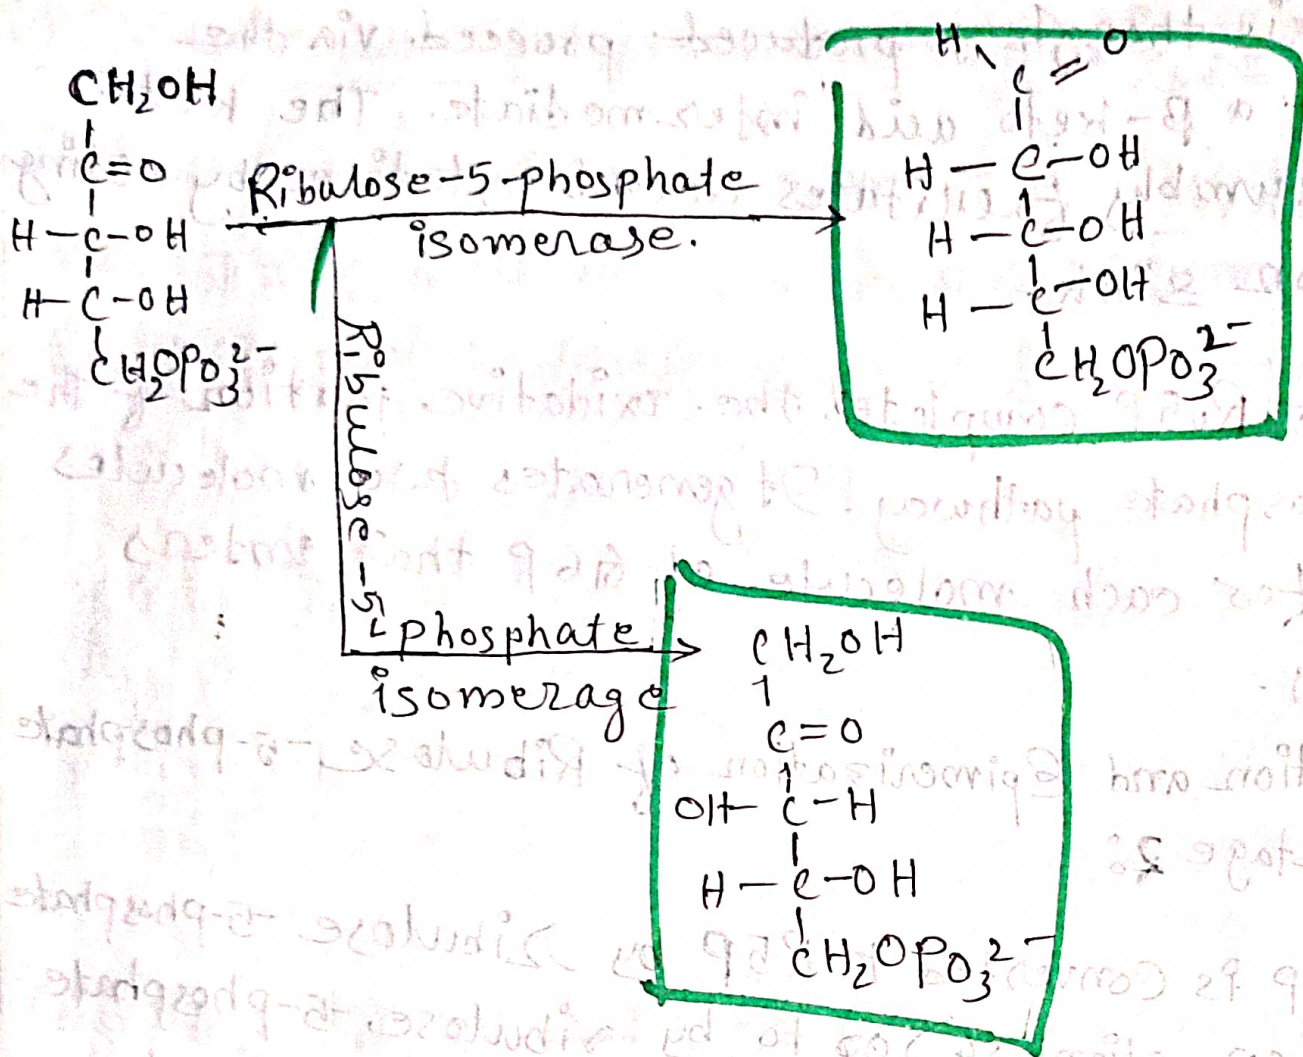 CH₂OH
C=O
H-C-OH
H-C-OH
CH₂OPO₃²⁻
Ribulose-5-phosphate
isomerase.
H O
C
H-C-OH
H-C-OH
H-C-OH
CH₂OPO₃²⁻
Ribulose-5-
phosphate
isomerage
CH₂OH
C=O
OH-C-H
H-C-OH
CH₂OPO₃²⁻